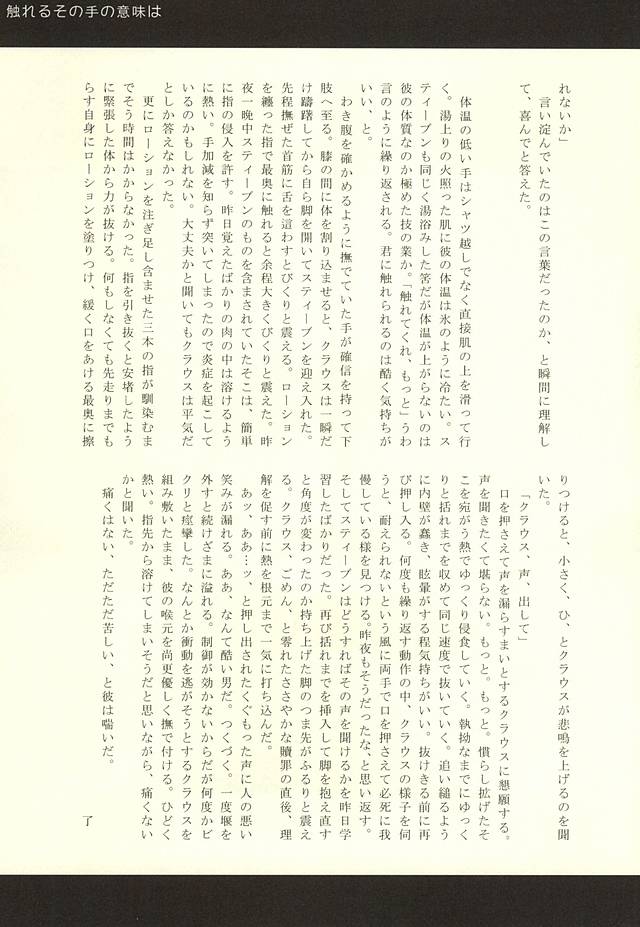 触れるその手の意味は
れないか」
　言い淀んでいたのはこの言葉だったのか、と瞬間に理解し
て、喜んでと答えた。
　体温の低い手はシャツ越しでなく直接肌の上を滑って行
く。湯上りの火照った肌に彼の体温は氷のように冷たい。ス
ティーブンも同じく湯浴みした筈だが体温が上がらないのは
彼の体質なのか極めた技の業か。「触れてくれ、もっと」うわ
言のように繰り返される。君に触れられるのは酷く気持ちが
いい、と。
　わき腹を確かめるように撫でていた手が確信を持って下
肢へ至る。膝の間に体を割り込ませると、クラウスは一瞬だ
け躊躇してから自ら脚を開いてスティーブンを迎え入れた。
先程撫ぜた首筋に舌を這わすとびくりと震える。ローション
を纏った指で最奥に触れると余程大きくびくりと震えた。昨
夜一晩中スティーブンのものを含まされていたそこは、簡単
に指の侵入を許す。昨日覚えたばかりの肉の中は溶けるよう
に熱い。手加減を知らず突いてしまったので炎症を起こして
いるのかもしれない。大丈夫かと聞いてもクラウスは平気だ
としか答えなかった。
　更にローションを注ぎ足し含ませた三本の指が馴染むま
でそう時間はかからなかった。指を引き抜くと安堵したよう
に緊張した体から力が抜ける。何もしなくても先走りまでも
らす自身にローションを塗りつけ、緩く口をあける最奥に擦
りつけると、小さく、ひ、とクラウスが悲鳴を上げるのを聞
いた。
「クラウス、声、出して」
　口を押さえて声を漏らすまいとするクラウスに懇願する。
声を聞きたくて堪らない。もっと。もっと。慣らし拡げたそ
こを宛がう熱でゆっくり侵食していく。執拗なまでにゆっく
りと括れまでを収めて同じ速度で抜いていく。追い縋るよう
に内壁が蠢き、眩暈がする程気持ちがいい。抜けきる前に再
び押し入る。何度も繰り返す動作の中、クラウスの様子を伺
うと、耐えられないという風に両手で口を押さえて必死に我
慢している様を見つける。昨夜もそうだったな、と思い返す。
そしてスティーブンはどうすればその声を聞けるかを昨日学
習したばかりだった。再び括れまでを挿入して脚を抱え直す
と角度が変わったのか持ち上げた脚のつま先がふるりと震え
る。クラウス、ごめん、と零れたささやかな贖罪の直後、理
解を促す前に熱を根元まで一気に打ち込んだ。
　あッ、ああ…ッ、と押し出されたくぐもった声に人の悪い
笑みが漏れる。ああ、なんて酷い男だ。つくづく。一度堰を
外すと続けざまに溢れる。制御が効かないからだが何度かビ
クリと痙攣した。なんとか衝動を逃がそうとするクラウスを
組み敷いたまま、彼の喉元を尚更優しく撫で付ける。ひどく
熱い。指先から溶けてしまいそうだと思いながら、痛くない
かと聞いた。
　痛くはない、ただただ苦しい、と彼は喘いだ。
了